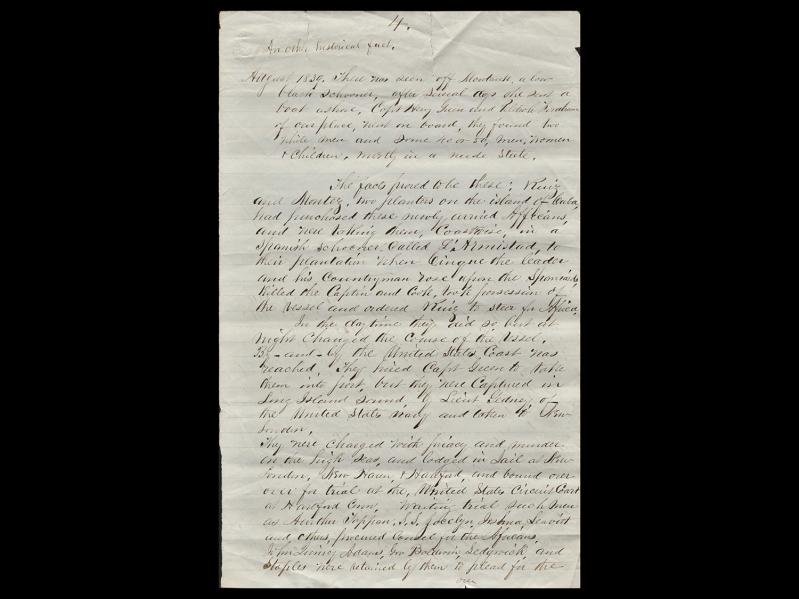 4.
Another historical fact.
August 1839. There was seen off Montauk, a low
black schooner, after several days she sent a
boat ashore, Capt Henry Green and
of our place, went on board, they found two
white men and some 40 or 50, men, women
& children, mostly in a nude state.
The facts proved to be these: Ruiz
and Montez, two planters on the island of Cuba,
had purchased these newly arrived Affricans,
and were taking them, Coastwise, in a
Spanish schooner, called L'Armistad, to
their plantation when Cinque the leader
and his Countryman rose upon the Spaniards
killed the Captin and Cook, took possession of
the vessel and ordered Ruiz to steer for Africa.
In the daytime they did so, but at
night changed the course of the Vessel.
By-and-by the United States Coast was
reached. They hired Capt Green to take
them into port, but they were Captured in
Long Island Sound, by Lieut Gedney of
the United States navy and taken to New
London.
They were charged with piracy and murder
on the high seas, and lodged in Jail at New
London, New Haven, & Hartford, and bound over
over for trial at the, United States Circuit Court
at Hartford Conn. Waiting trial such men
as Arthur Tappan, S.S. Jocelyn, Joshua Leavitt
and others, procured Consel for the Africans,
John Quincy Adams, Gov Baldwin, Sedgwick, and
Staples were retained by them to plead for the
over